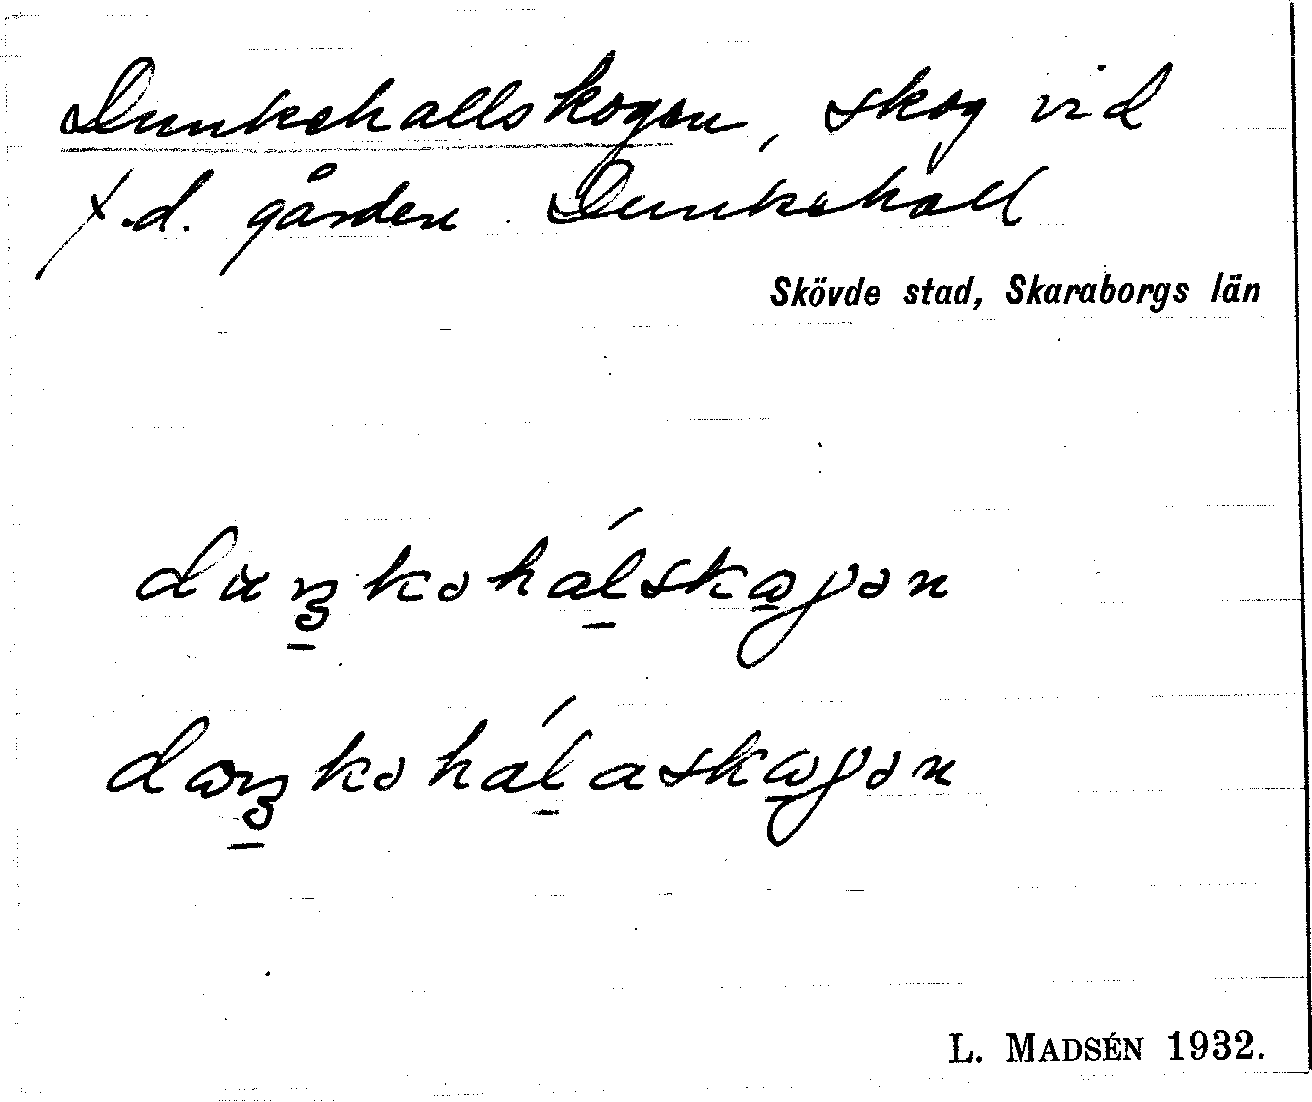 Dunkehallskogen, skog vid
f.d. gården Dunkehall
Skövde stad, Skaraborgs län
duŋkəhálskωgən
dωŋkəhálaskωgən
L. MADSÉN 1932.